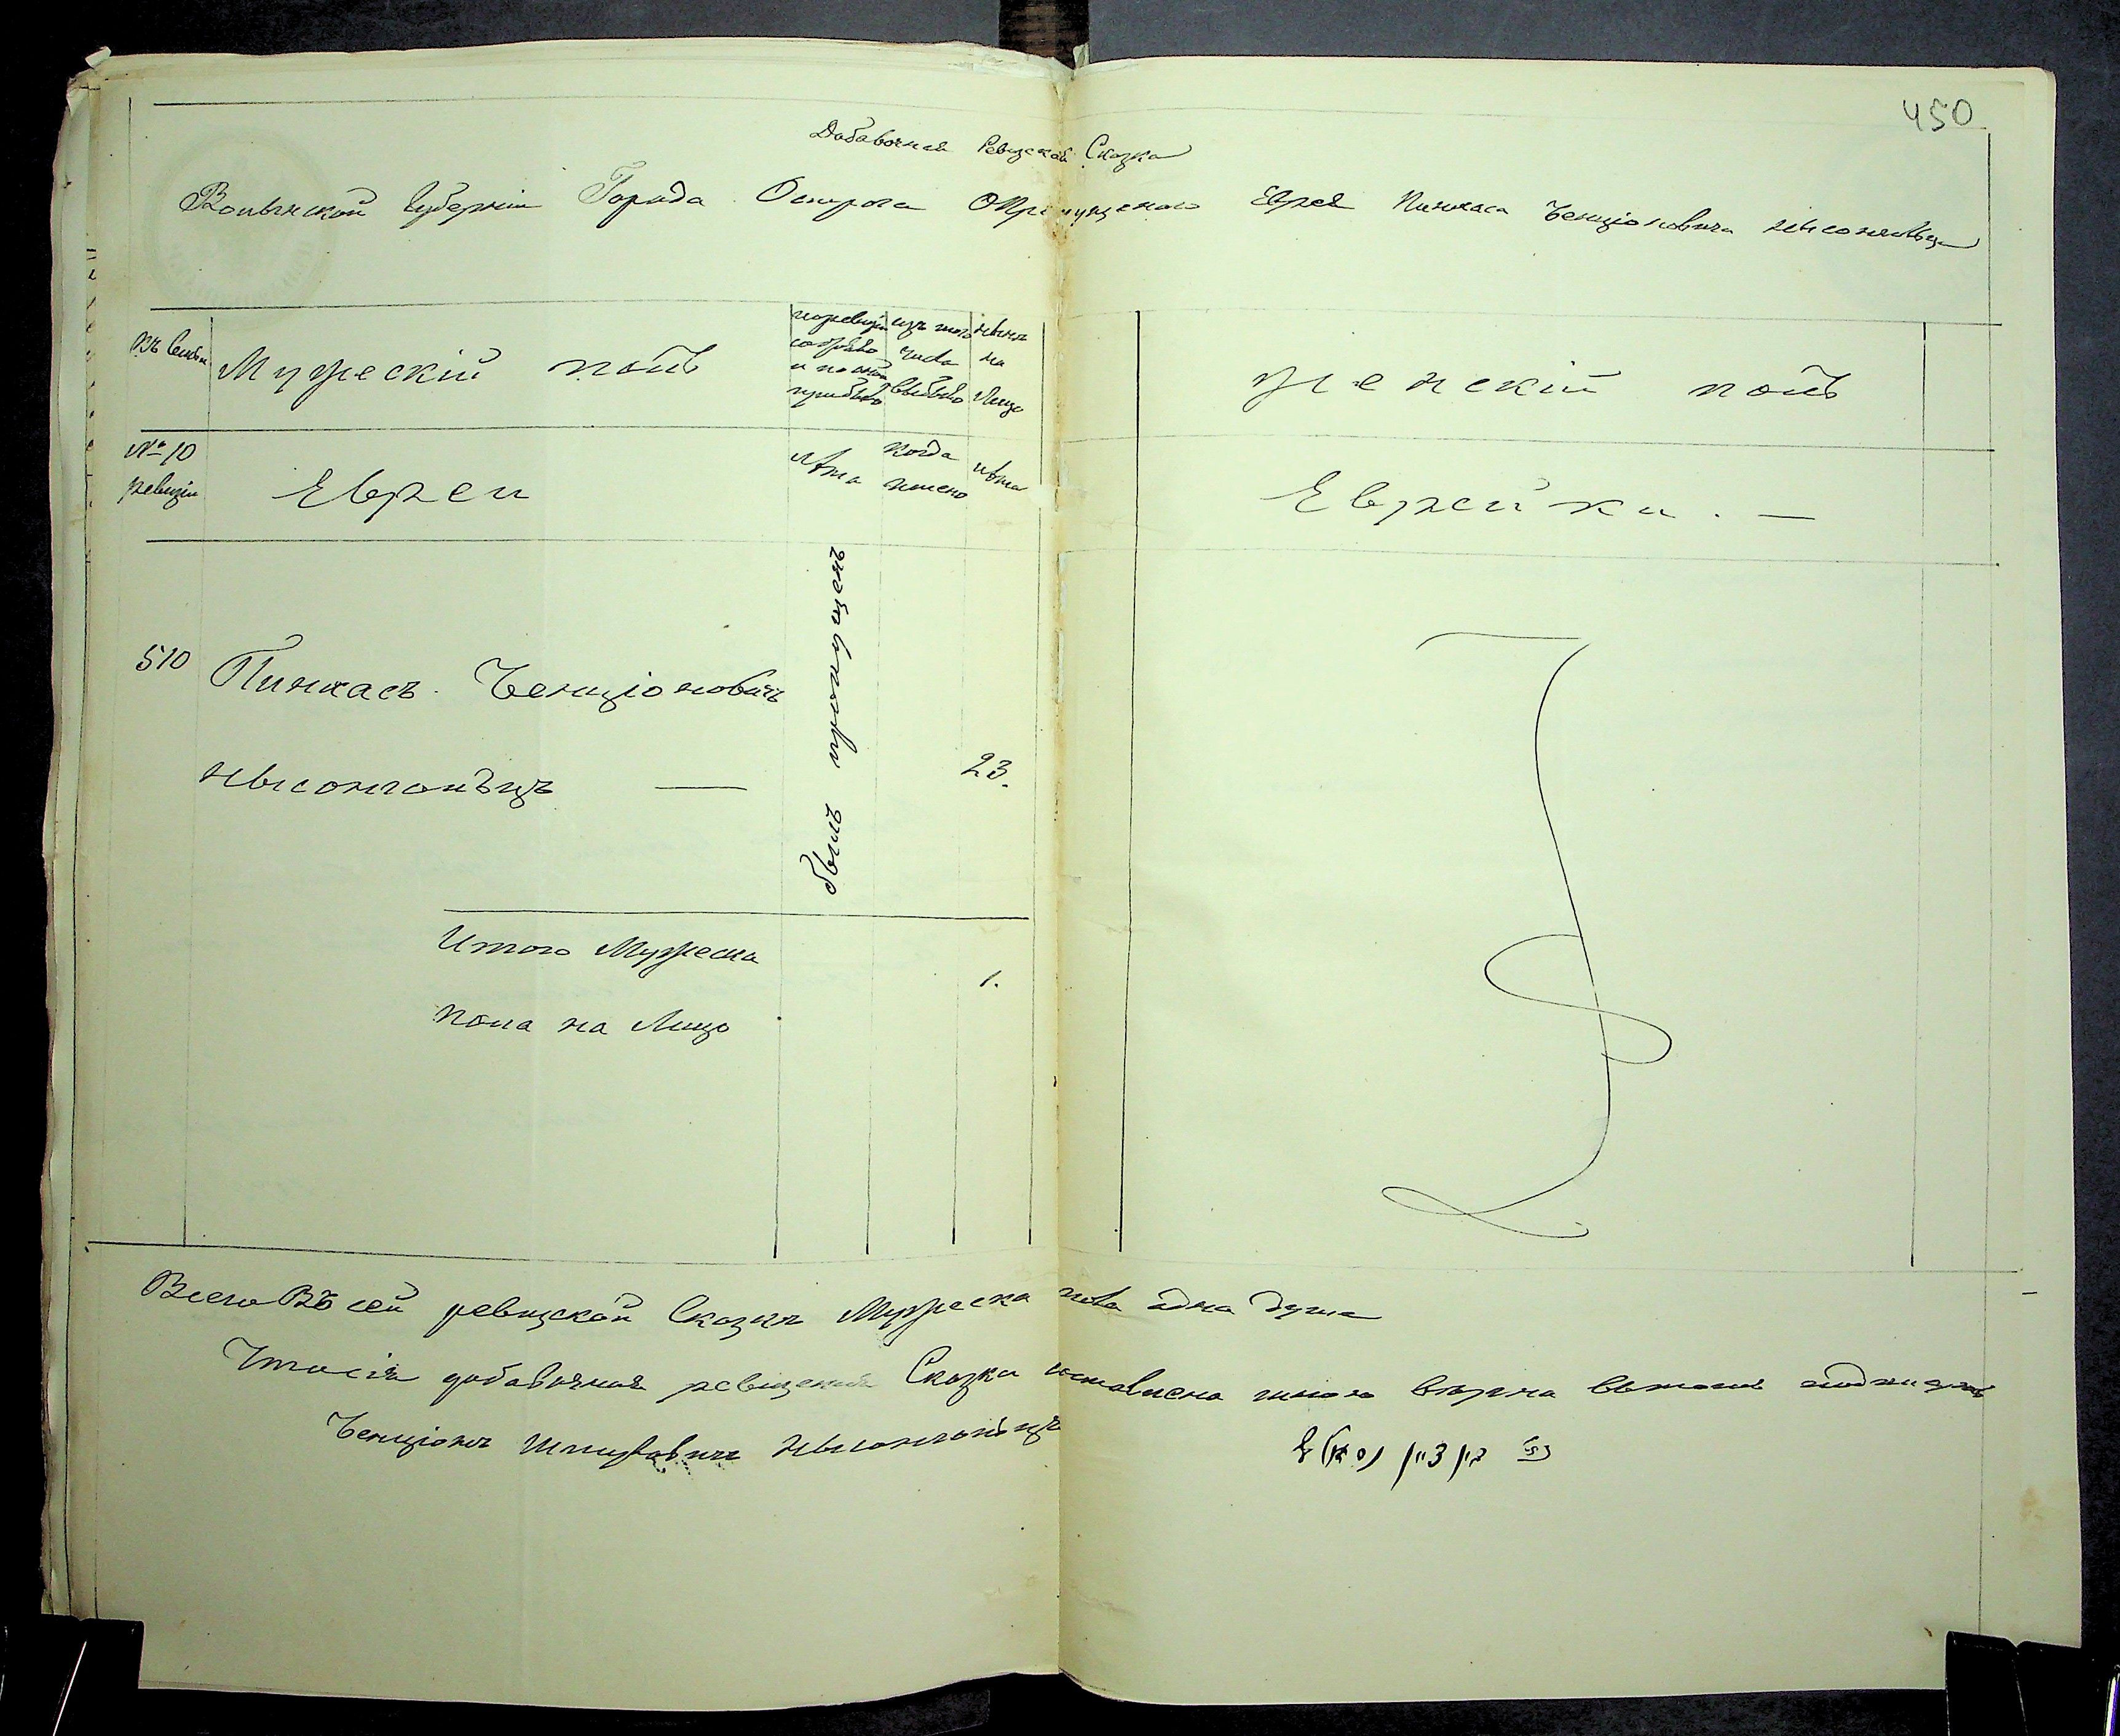 450
Добавочная Ревизская Сказка
Волынской Губерніи Города Острога О Пропущеномъ Еврея Пинкаса Бенціоновича
въ семьи
Мужескій полъ
по ревизіи состояло и послѣ прибыло
изъ того числа выбыло
нынѣ на Лицо
женскій полъ
№ 10 ревизіи
Евреи
лѣта
когда имено
лѣта
Еврейки. —
510
Пинкасъ Бенціоновичъ
былъ пропущенъ
23.
Итого Мужеска
1.
пола на Лицо
Всего въ сей ревизской Сказкѣ Мужеска пола одна душа
Что сія добавочная ревизская Сказка составлена вѣрна въ томъ
Бенціонъ